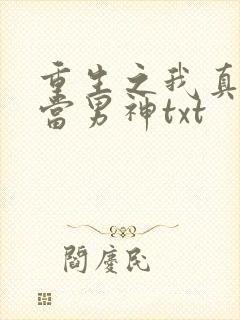 重生之我真
當男神txt
閻慶民